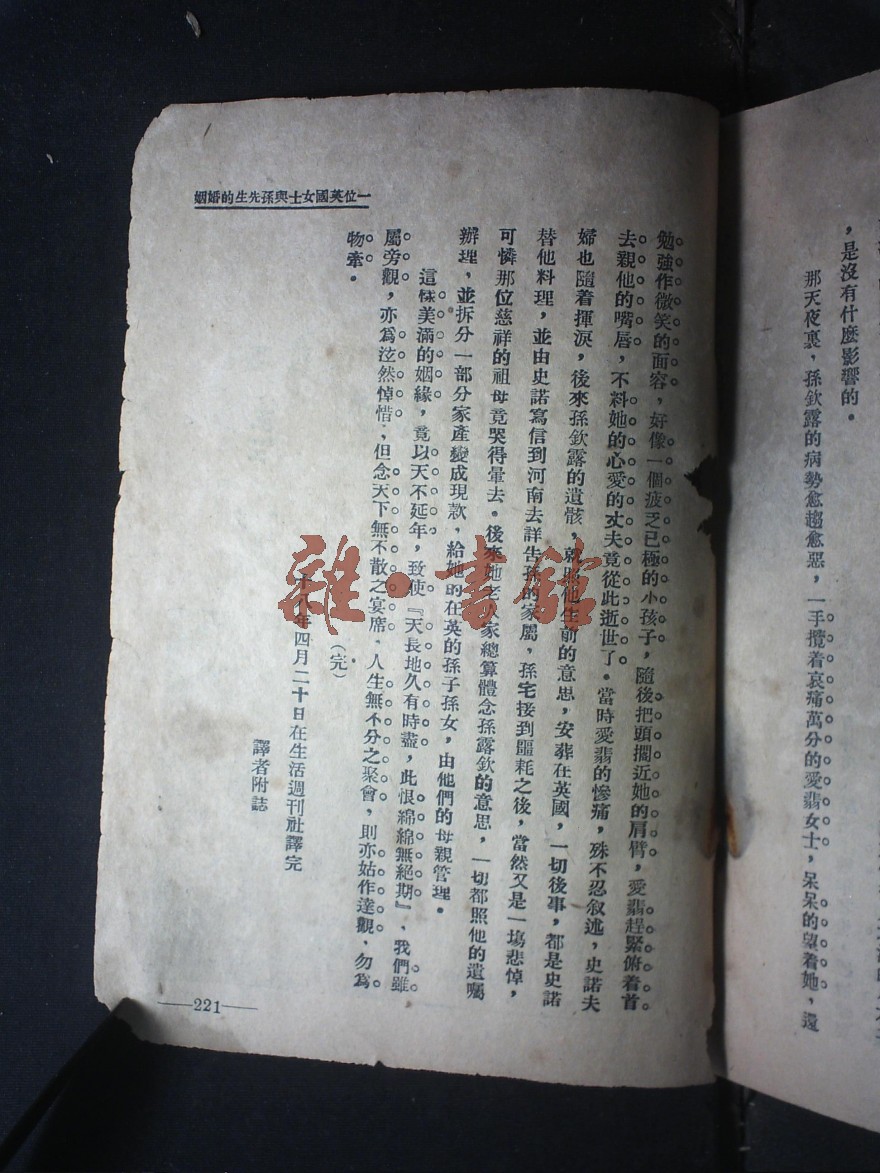 ，是沒有什麼影響的。
那天夜裏，孫欽露的病勢愈趨愈惡，一手攬着哀痛萬分的愛翡女士，呆呆的望着她，還
一位英國女士與孫先生的婚姻
勉強作微笑的面容，好像一個疲乏已極的小孩子，隨後把頭擱近她的肩臂，愛翡趕緊俯着首
去親他的嘴唇，不料她的心愛的丈夫竟從此逝世了。當時愛翡的慘痛，殊不忍叙述，史諾夫
婦也隨着揮淚，後來孫欽露的遺骸，就照他生前的意思，安葬在英國，一切後事，都是史諾
替他料理，並由史諾寫信到河南去詳告孫的家屬，孫宅接到噩耗之後，當然又是一塲悲悼，
可憐那位慈祥的祖母竟哭得暈去。後來她老人家總算體念孫露欽的意思，一切都照他的遺囑
辦理，並拆分一部分家產變成現款，給她的在英的孫子孫女，由他們的母親管理。
這樣美滿的姻緣，竟以天不延年，致使『天長地久有時盡，此恨綿綿無絕期』，我們雖
屬旁觀，亦爲泫然悼惜，但念天下無不散之宴席，人生無不分之聚會，則亦姑作達觀，勿爲
物牽。
（完）
十八年四月二十日在生活週刊社譯完
譯者附誌
221
雜·書館